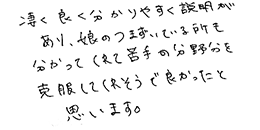 凄く良く分かりやすく説明が
あり、娘のつまずいている所も
分かってくれて苦手の分野分を
克服してくれそうで良かったと
思います。